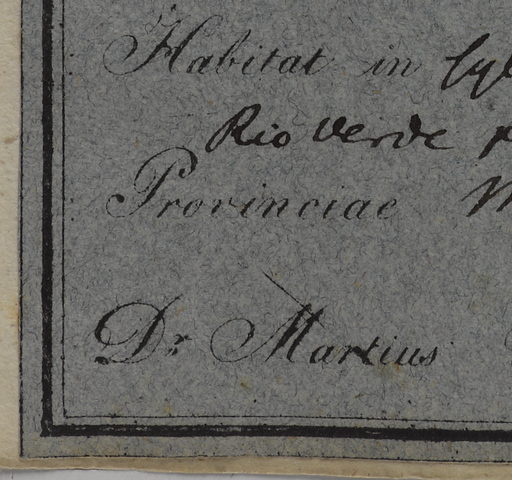 Habitat in
Rio Verde
Provinciae
Dr Martius